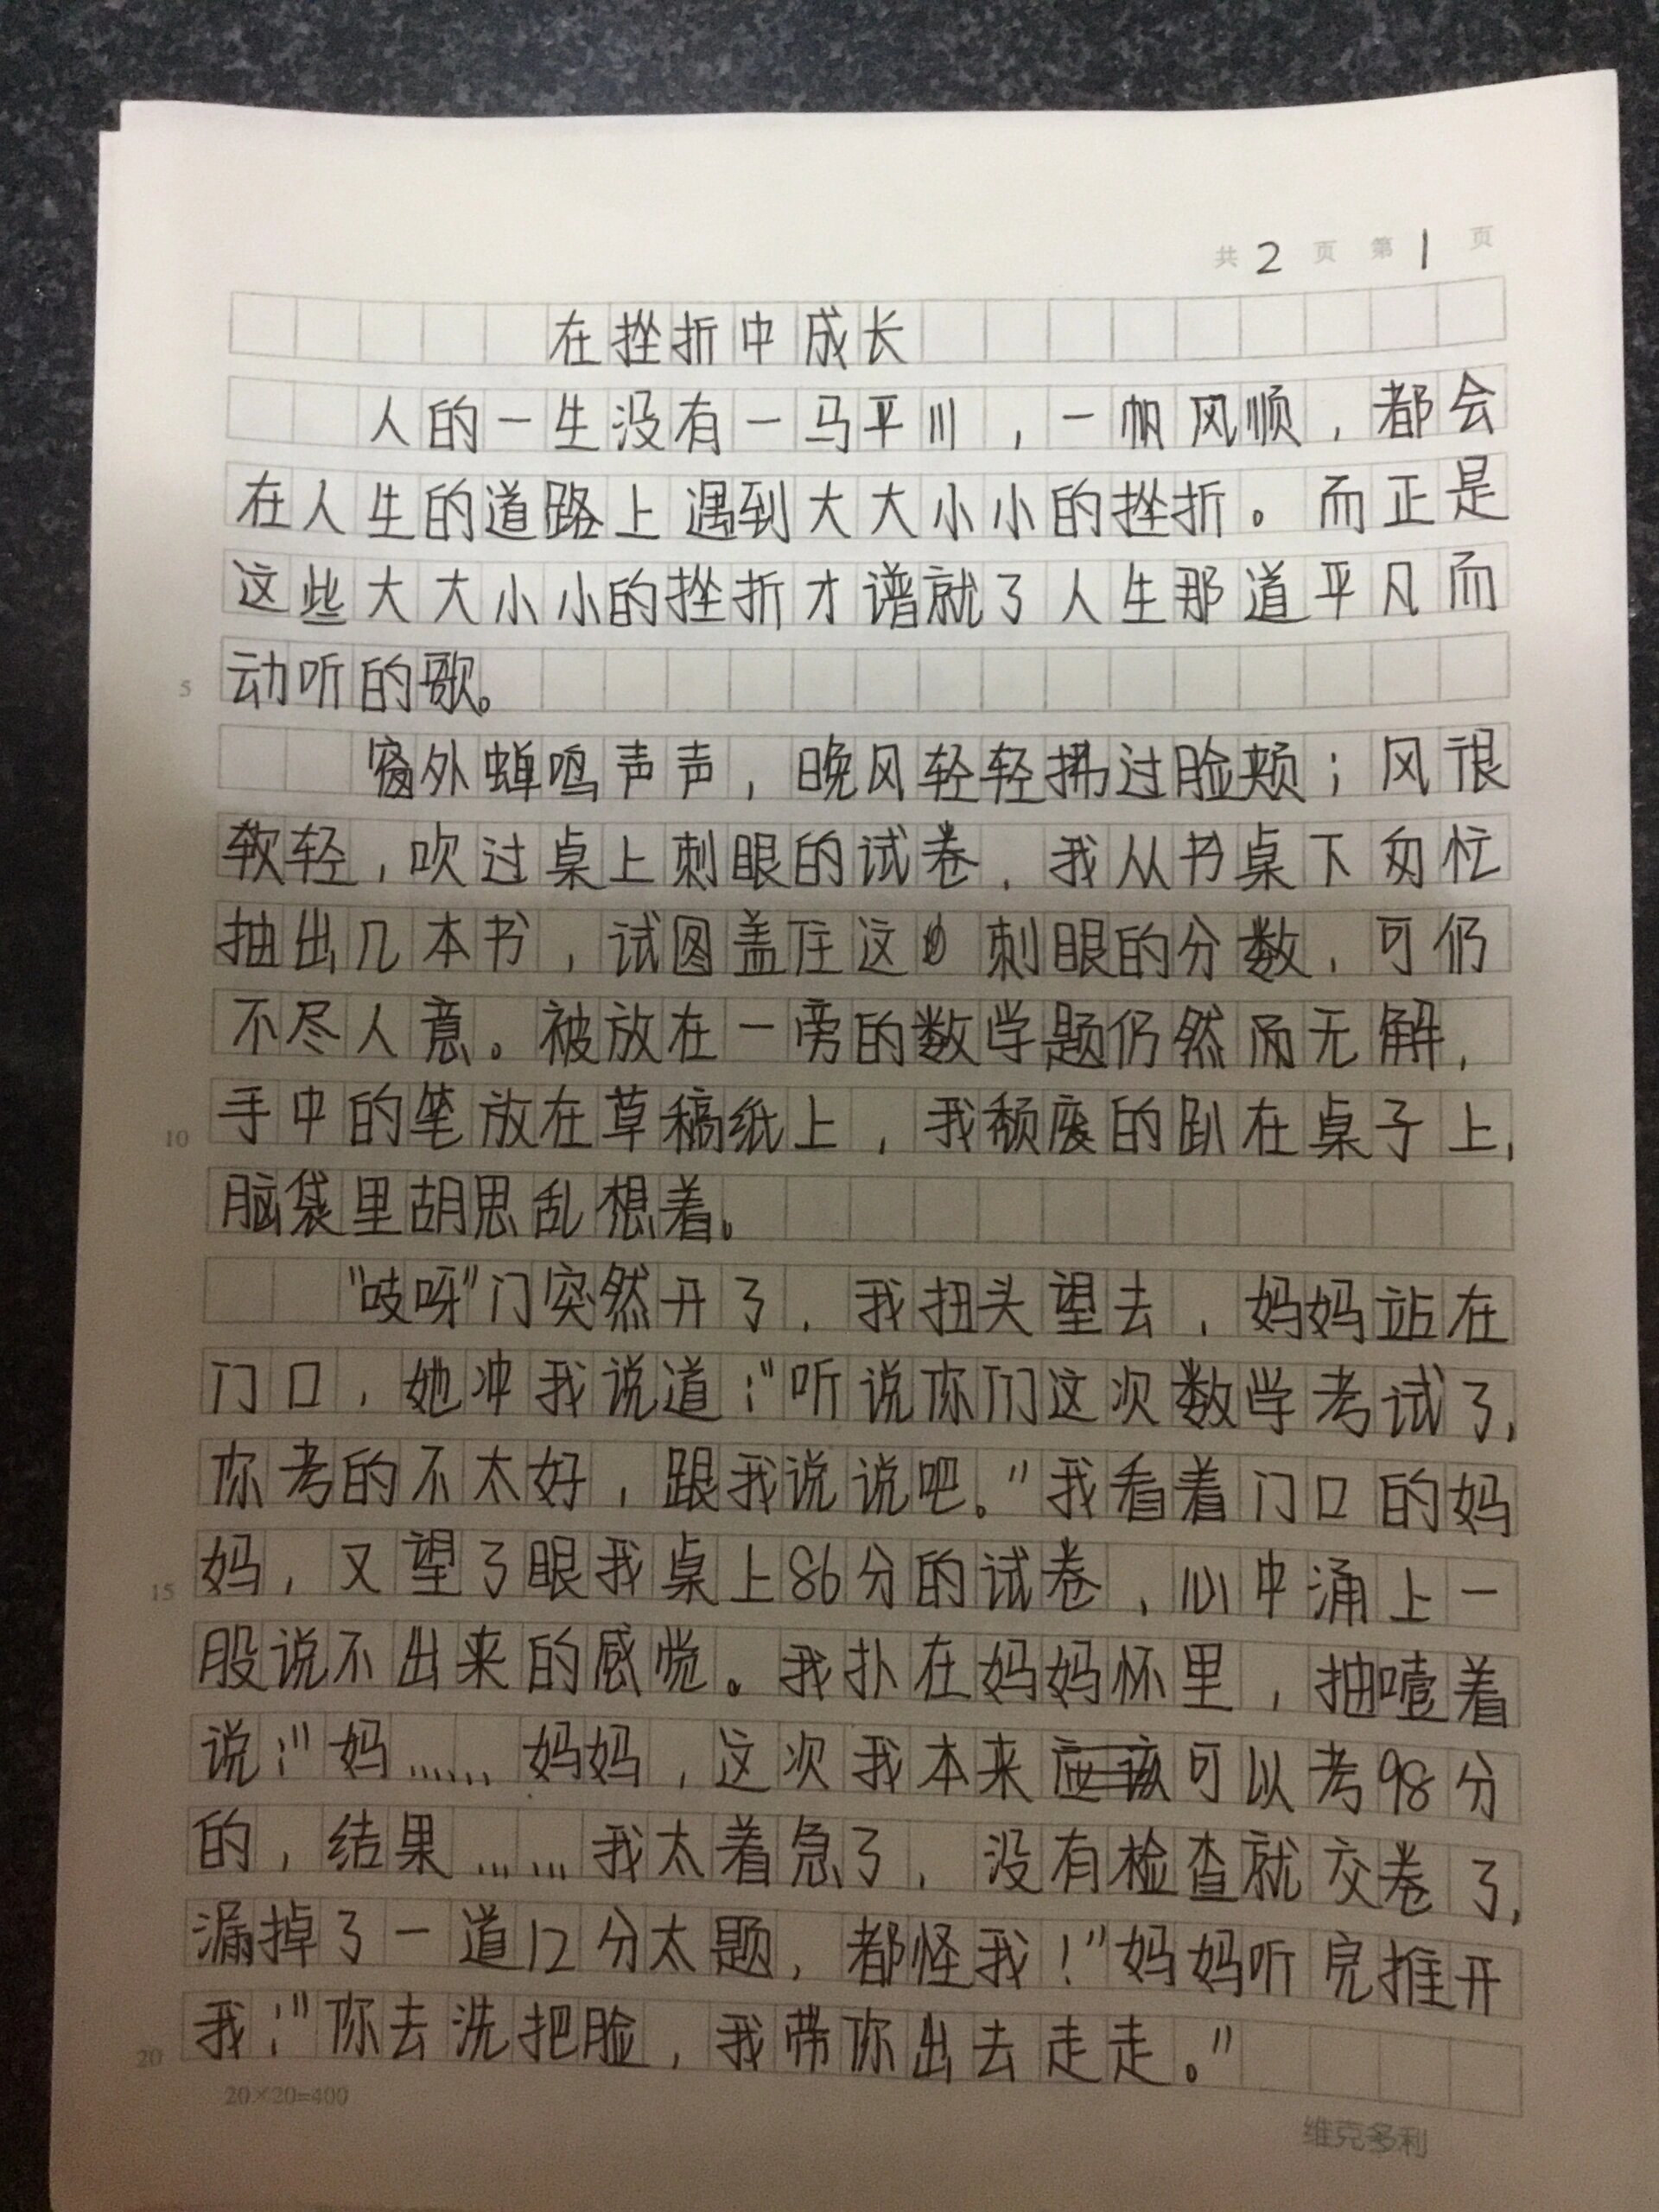 共2页 第1页
在挫折中成长
人的一生没有一马平川，一帆风顺，都会
在人生的道路上遇到大大小小的挫折。而正是
这些大大小小的挫折才谱就了人生那道平凡而
5 动听的歌。
窗外蝉鸣声声，晚风轻轻拂过脸颊；风很
软轻，吹过桌上刺眼的试卷，我从书桌下匆忙
抽出几本书，试图盖住这刺眼的分数，可仍
不尽人意。被放在一旁的数学题仍然而无解，
10 手中的笔放在草稿纸上，我颓废的趴在桌子上，
脑袋里胡思乱想着。
“吱呀”门突然开了，我扭头望去，妈妈站在
门口，她冲我说道：“听说你们这次数学考试了，
你考的不太好，跟我说说吧。”我看着门口的妈
15 妈，又望了眼我桌上86分的试卷，心中涌上一
股说不出来的感觉。我扑在妈妈怀里，抽噎着
说：“妈……妈妈，这次我本来可以考98分
的，结果……我太着急了，没有检查就交卷了，
漏掉了一道12分太题，都怪我！”妈妈听完推开
20 我：“你去洗把脸，我带你出去走走。”
20×20=400
维克多利